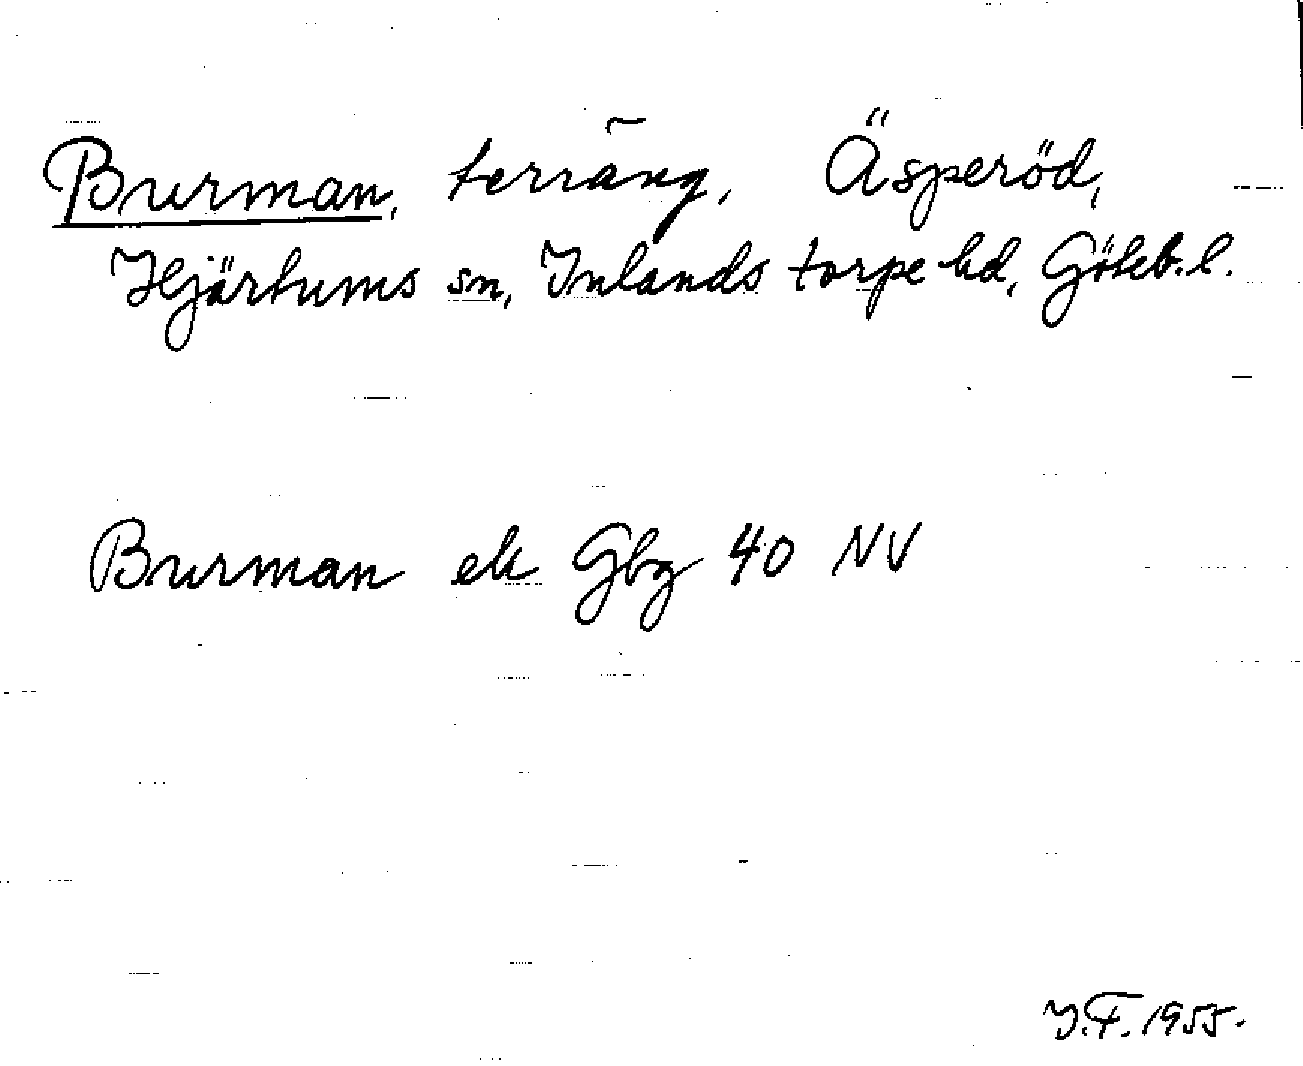 Burman, terräng, Äsperöd,
Hjärtums sn, Inlands torpe hd, Göteb. l.
Burman ek Gbg 40 NV
I.F. 1955.